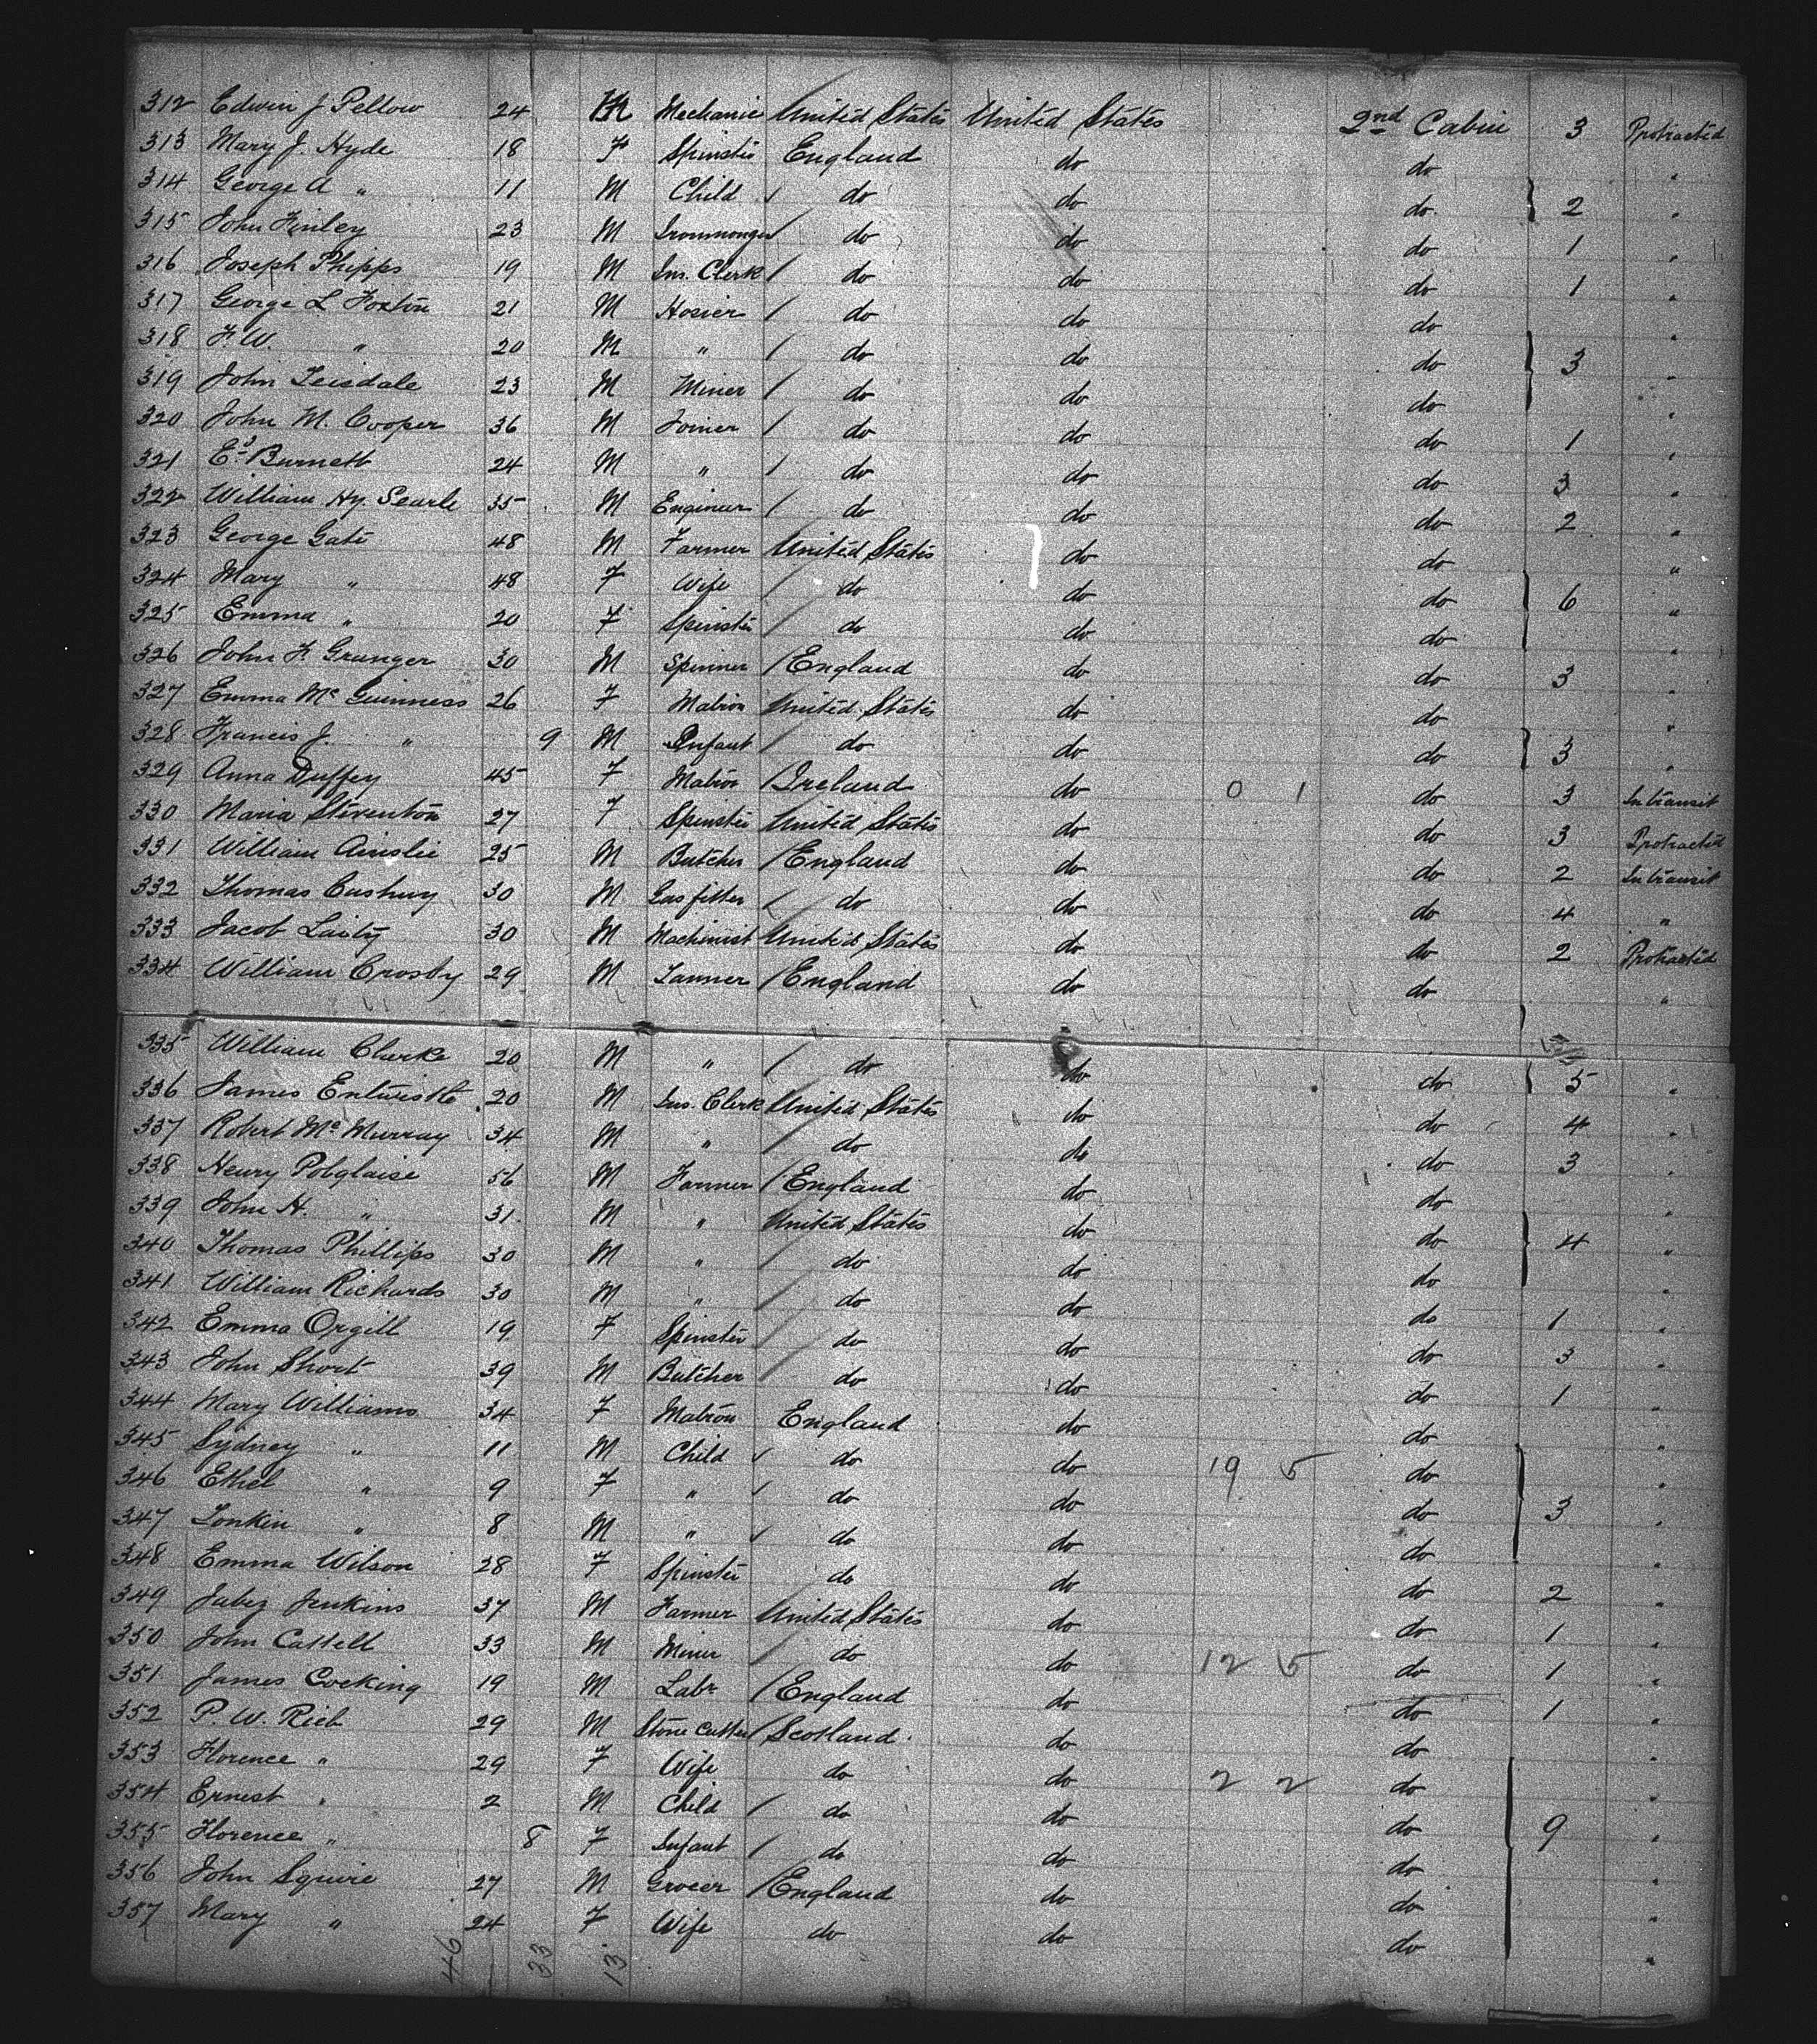 312 Edwin J Pellow 24 M Mechanic United States United States 2nd Cabin 3 Protracted
313 Mary J. Hyde 18 F Spinster England do do "
314 George A " 11 M Child do do do 2 "
315 John Finley 23 M Ironmonger do do do 1 "
316 Joseph Phipps 19 M Ins. Clerk do do do 1 "
317 George L Foxton 21 M Hosier do do do "
318 F. W. " 20 M " do do do 3 "
319 John Teisdale 23 M Miner do do do "
320 John M. Cooper 36 M Joiner do do do 1 "
321 Ed Burnett 24 M " do do do 3 "
322 William Hy. Searle 35 M Engineer do do do 2 "
323 George Gate 48 M Farmer United States do do "
324 Mary " 48 F Wife do do do 6 "
325 Emma " 20 F Spinster do do do "
326 John F. Granger 30 M Spinner England do do 3 "
327 Emma Mc Guinness 26 F Matron United States do do "
328 Francis J. " 9 M Infant do do do 3 "
329 Anna Duffey 45 F Matron Ireland do 0 1 do 3 In transit
330 Maria Steventon 27 F Spinster United States do do 3 Protracted
331 William Ainslie 25 M Butcher England do do 2 In transit
332 Thomas 30 M Gasfitter do do do 4 "
333 Jacob Laity 30 M Machinist United States do do 2 Protracted
334 William Crosby 29 M Tanner England do do "
335 William Clarke 20 M " do do do 5 "
336 James Entwistle 20 M Ins. Clerk United States do do 4 "
337 Robert Mc Murray 34 M " do do do 3 "
338 Henry Pobglaise 56 M Farmer England do do "
339 John H. " 31 M " United States do do 4 "
340 Thomas Phillips 30 M " do do do "
341 William Richards 30 M " do do do 1 "
342 Emma Orgill 19 F Spinster do do do 3 "
343 John Short 39 M Butcher do do do 1 "
344 Mary Williams 34 F Matron England do do "
345 Sydney " 11 M Child do do 19 5 do "
346 Ethel " 9 F " do do do 3 "
347 Lonkin " 8 M " do do do "
348 Emma Wilson 28 F Spinster do do do 2 "
349 Jabez Jenkins 37 M Farmer United States do do 1 "
350 John Cattell 33 M Miner do do 12 5 do 1 "
351 James Cocking 19 M Labr England do do 1 "
352 P. W. 29 M Stone Cutter Scotland do do "
353 Florence " 29 F Wife do do 2 2 do "
354 Ernest " 2 M Child do do do 9 "
355 Florence " 8 F Infant do do do "
356 John Squire 27 M Grocer England do do "
357 Mary " 24 F Wife do do do "
46 33 13